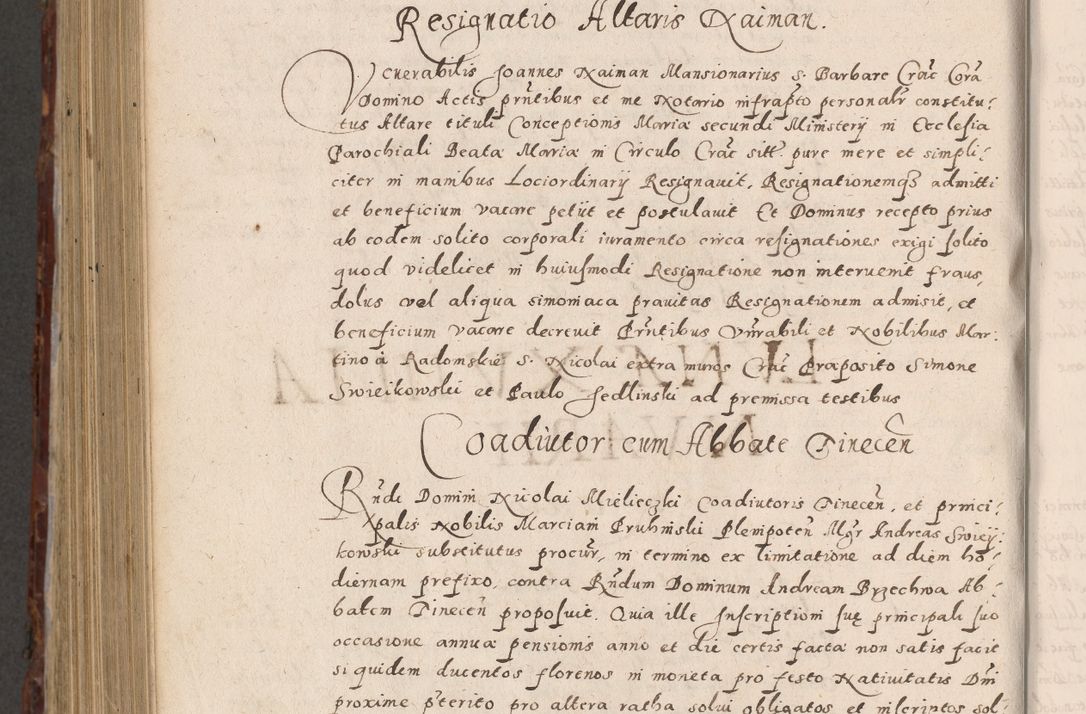 Resignatio Altaris Naiman.
Venerabilis Joannes Naiman Mansionarius s. Barbare Crac̃ Corã
Domino Actis prñtibus et me Notario infrapto personalr̃ constitu⸗
tus Altare tituli Conceptionis Mariæ secundi Ministerij in Ecclesia
Parochiali Beatæ Mariæ in Circulo Crac̃ sitt. pure mere et simpli⸗
citer in manibus Lociordinarij Resignavit, Resignationemq3 admitti
et beneficium vacare petiit et postulavit Et Dominus recepto prius
ab eodem solito corporali iuramento circa resignationes exigi solito
quod videlicet in huiusmodi Resignatione non intervenit fraus,
dolus vel aliqua simoniaca pravitas Resignationem admisit, et
beneficium vacare decrevit Prñtibus Vnrabili et Nobilibus Mar⸗
tino à Radomskie s. Nicolai extra muros Crac̃ Præposito Simone
Swieikowski et Paulo Jedlinski ad premissa testibus
Coadiutor cum Abbate Tinecen̄
Rñdi Domini Nicolai Mieliczki Coadiutoris Tinecen̄, et princi⸗
palis Nobilis Marciani Pruhinski Plenipoten̄ Mgr̃ Andreas Swiey⸗
kowski substitutus procur̃, in termino ex limitatione ad diem ho⸗
diernam prefixo, contra Rñdum Dominum Andream Brzechwa Ab⸗
batem Tinecen̄ proposuit. Quia ille Inscriptioni suę principali suo
occasione annuæ pensionis anno et die certis factæ non satis facit
si quidem ducentos florenos in moneta pro festo Nativitatis Dñi
proxime pterito pro altera ratha solui obligatos et inscriptos sol⸗